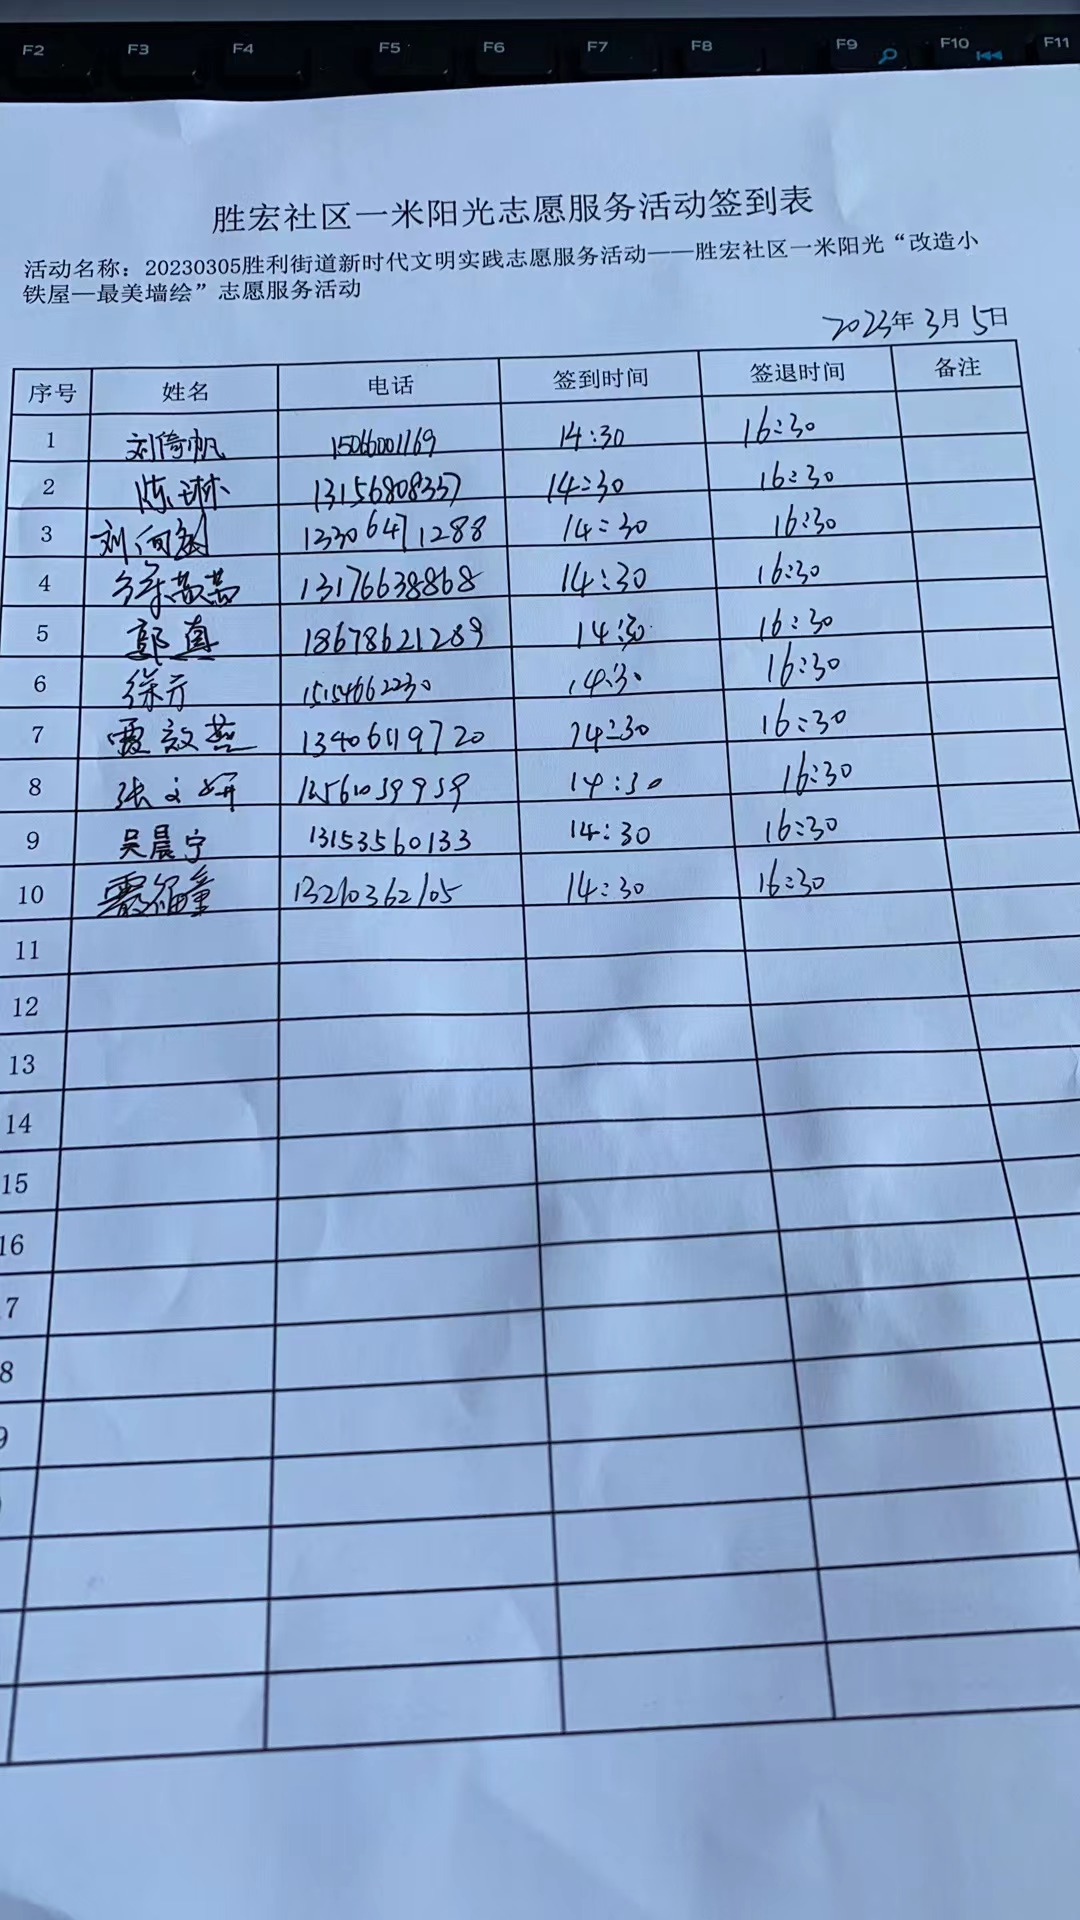 F2 F3 F4 F5 F6 F7 F8 F9 F10 F11
胜宏社区一米阳光志愿服务活动签到表
活动名称：20230305胜利街道新时代文明实践志愿服务活动——胜宏社区一米阳光“改造小
铁屋—最美墙绘”志愿服务活动
2023年 3月 5日
序号 姓名 电话 签到时间 签退时间 备注
1 刘倚帆 15066001169 14:30 16:30
2 陈琳 13156808357 14:30 16:30
3 刘向 13306471288 14:30 16:30
4 徐蒿蒿 13176638868 14:30 16:30
5 郭真 18678621289 14:30 16:30
6 徐亓 15154662230 14:30 16:30
7 效燕 13406119720 14:30 16:30
8 张文妍 14:30 16:30
9 吴晨宁 13153560133 14:30 16:30
10 13210362105 14:30 16:30
11
12
13
14
15
16
7
8
9